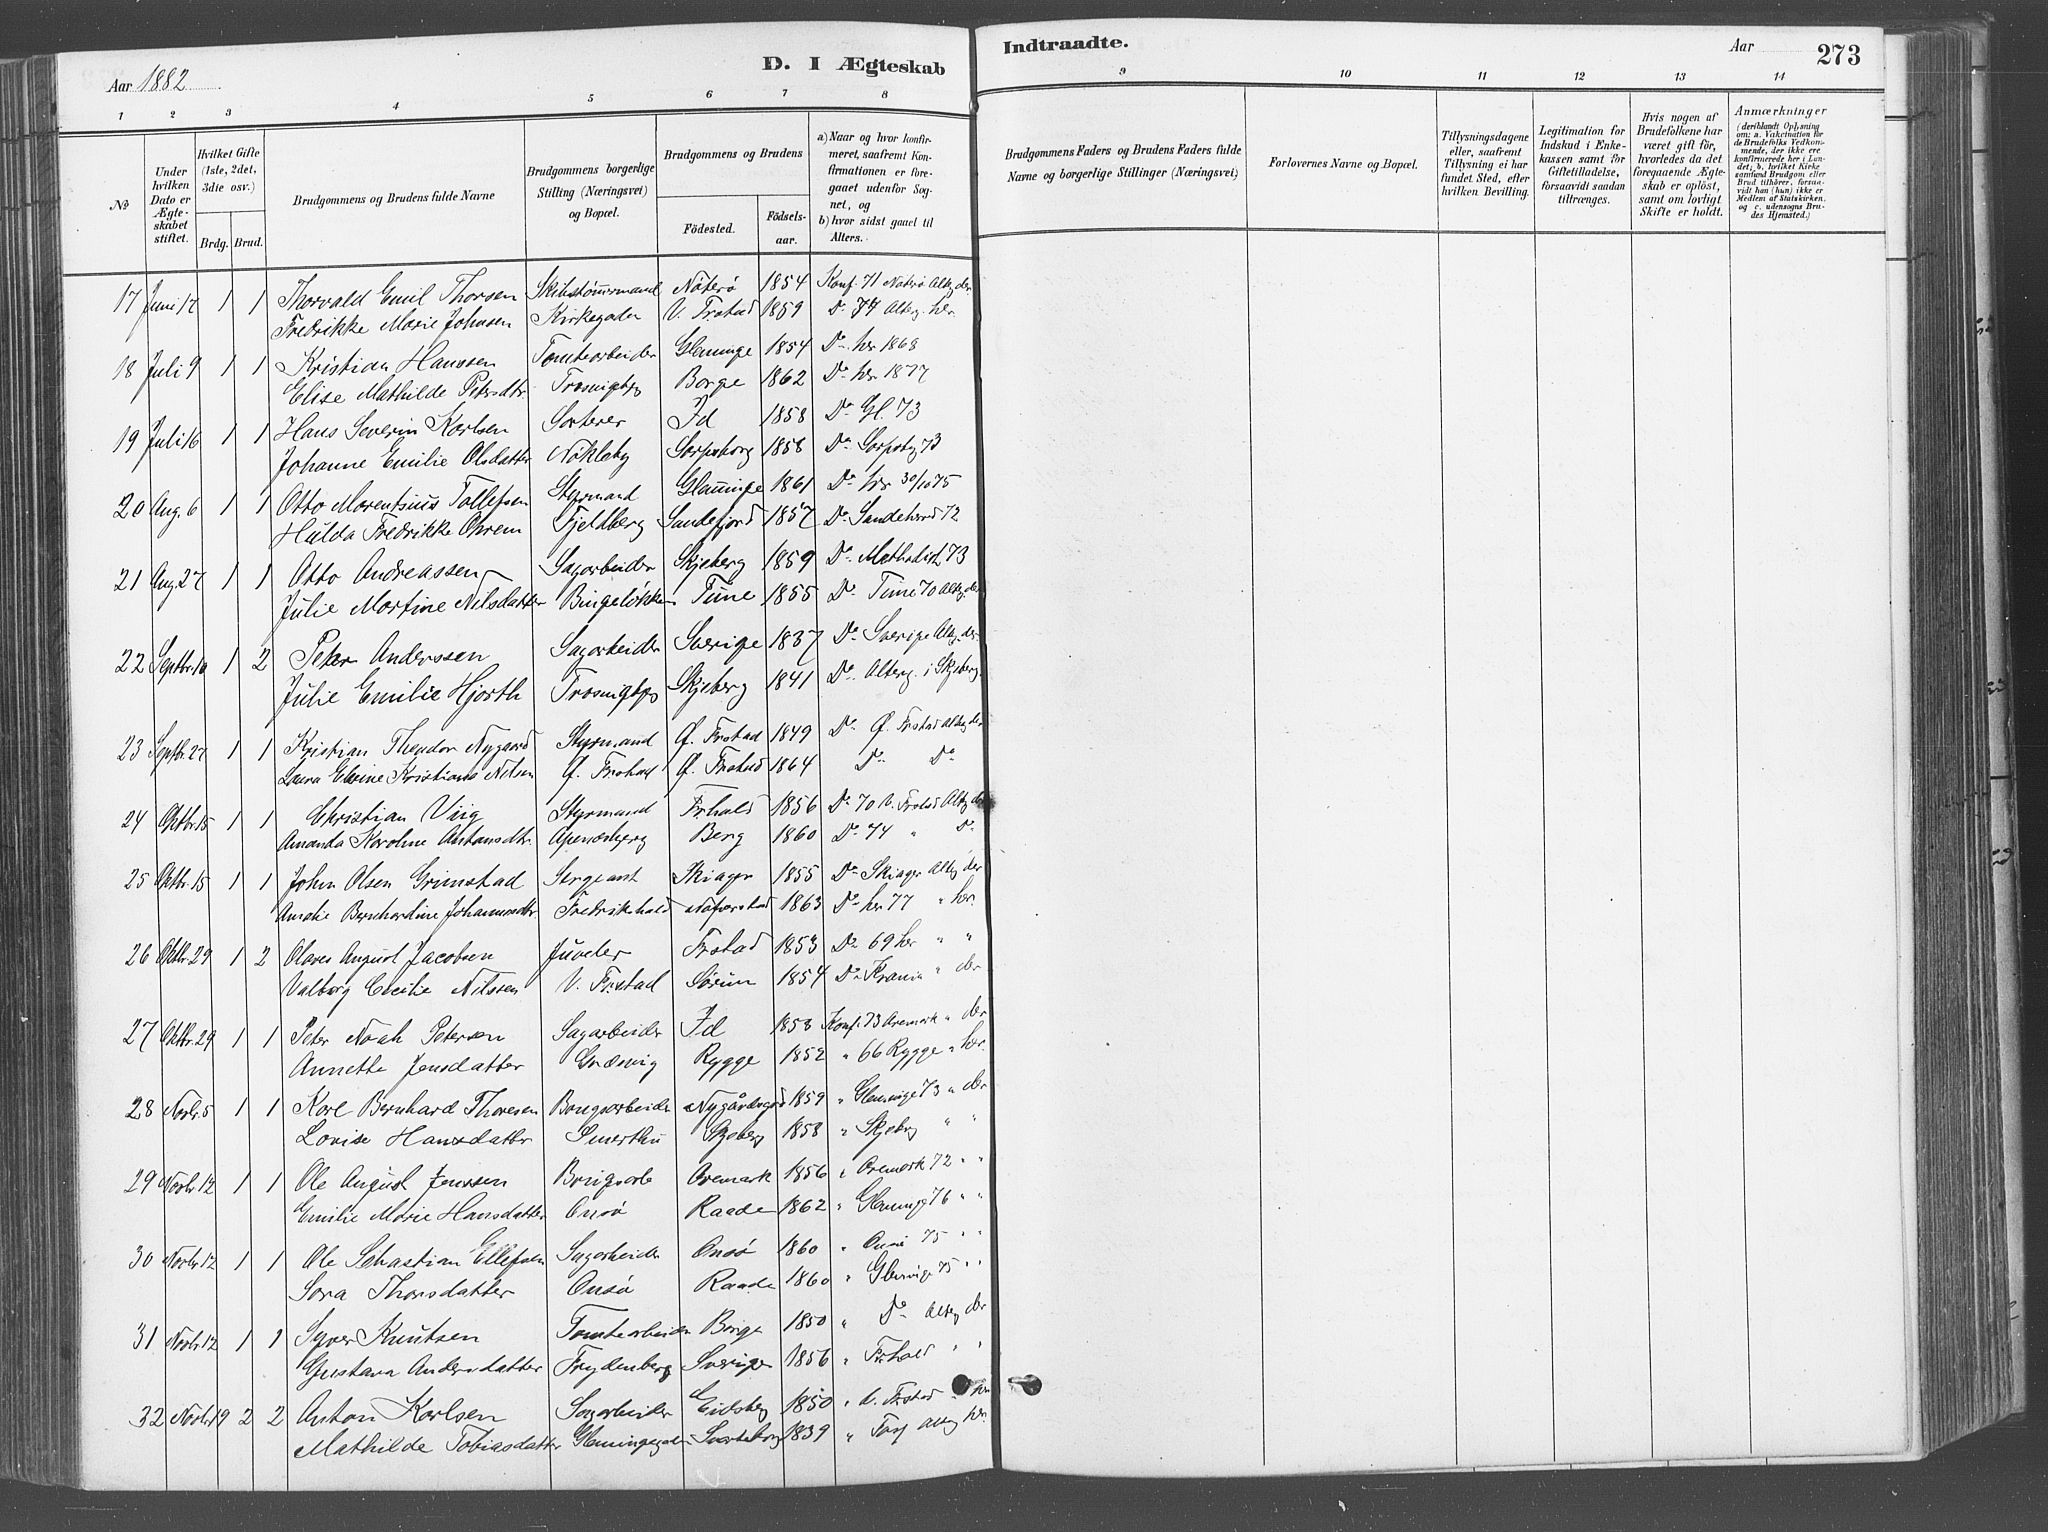 Aar 1882
D. I Ægteskab
Indtraadte.
Aar
273
1 2 3 4 5 6 7 8 9 10 11 12 13 14
No
Under hvilken Dato er Ægteskabet stiftet.
Hvilket Gifte (1ste, 2det, 3die osv.)
Brdg. Brud.
Brudgommens og Brudens fulde Navne
Brudgommens borgerlige Stilling (Næringsvei) og Bopæl.
Brudgommens og Brudens
Födested. Födselsaar.
a) Naar og hvor konfirmeret, saafremt Konfirmationen er foregaaet udenfor Sognet, og
b) hvor sidst gaaet til Alters.
Brudgommens Faders og Brudens Faders fulde Navne og borgerlige Stillinger (Næringsvei)
Forlovernes Navne og Bopæl.
Tillysningsdagene eller, saafremt Tillysning ei har fundet Sted, efter hvilken Bevilling.
Legitimation for Indskud i Enkekassen samt for Giftetilladelse, forsaavidt saadan tiltrænges.
Hvis nogen af Brudefolkene har været gift før, hvorledes da det foregaaende Ægteskab er opløst, samt om lovligt Skifte er holdt.
Anmærkninger
(deriblandt Oplysning om: a. Vakcination for de Brudefolks Vedkommende, der ikke ere konfirmerede her i Landet; b. hvilket Kirkesamfund Brudgom eller Brud tilhörer, forsaavidt han (hun) ikke er Medlem af Statskirken, og c. udensogns Brudes Hjemsted.)
17 Juni 17 1 1 Thorvald Emil Thorsen Skibstømmermand Nøterø 1854 Konf. 71 Nøterø Altg. der
Fredrikke Marie Johnsen Kirkegaden V. Frstad 1859 Do 74 Alterg. her
18 Juli 9 1 1 Kristian Hanssen Tomtearbeider Glemminge 1854 Do her 1868
Elise Mathilde Petersdtr. Trosvigbg Borge 1862 Do her 1877
19 Juli 16 1 1 Hans Severin Karlsen Sorterer Id 1858 Do Gl. 73
Johanne Emilie Olsdatter Nøkleby Sarpsborg 1858 Do Sarpsbg 73
20 Aug. 6 1 1 Otto Morentsius Tollefsen Styrmand Glemminge 1861 Do her 30/10 75
Hulda Fredrikke Ohrem Fjeldberg Sandefjord 1857 Do Sandeherred 72
21 Aug. 27 1 1 Otto Andreassen Sagarbeider Skjeberg 1859 Do Methodist 73
Julie Martine Nilsdatter Bingeløkken Tune 1855 Do Tune 70 Altg. der
22 Septbr. 10 1 2 Peter Anderssen Sagarbeider Sverige 1837 Do Sverige Altg. der
Julie Emilie Hjorth Trosvigbg Skjeberg 1841 Do Alterg. i Skjeberg
23 Septbr. 27 1 1 Kristian Theodor Nygaard Styrmand Ø. Frstad 1849 Do Ø. Frstad Altg. der
Laura Elvine Kristiane Nilsen Ø. Frstad Ø. Frstad 1864 Do Do
24 Oktbr. 15 1 1 Christian Viig Styrmand Frhald 1856 Do 70 V. Frstad Altg. der
Amanda Karoline Antonsdtr. Apenesberg Berg 1860 Do 74 " Do
25 Oktbr. 15 1 1 Johan Olsen Grimstad Sergeant Skiager 1855 Do Skiager Altg. der
Amalie Bernhardine Johannsdtr. Fredrikshald 1863 Do her 77 " her
26 Oktbr. 29 1 2 Olaves August Jacobsen Juveler Frstad 1853 Do 69 her " "
Valborg Cecilie Nilssen V. Frstad Sørum 1854 Do Krania " der
27 Oktbr. 29 1 1 Peter Noah Petersen Sagarbeider Id 1853 Konf. 73 Aremark " der
Annette Jensdatter Gressvig Rygge 1852 " 66 Rygge " her
28 Novbr. 5 1 1 Karl Bernhard Thoresen Brugsarbeider Nygårdsgd 1859 " Glemminge 73 " der
Lovise Hansdatter Smerthu Skjeberg 1858 " Skjeberg " "
29 Novbr. 12 1 1 Ole August Jenssen Brugsarb Aremark 1856 " Aremark 72 " "
Emilie Marie Hansdatter Onsø Raade 1862 " Glemminge 76 " "
30 Novbr. 12 1 1 Ole Sebastian Ellefsen Sagarbeider Onsø 1860 " Onsø 75 " "
Sara Thorsdatter Onsø Raade 1860 " Glemminge 75 " "
31 Novbr. 12 1 1 Syver Knutsen Tomtearbeider Borge 1850 " Do Alterg der
Gustava Andersdatter Frydenberg Sverige 1856 " Frhald " "
32 Novbr. 19 2 2 Anton Karlsen Sagarbeider Eidsberg 1850 " V. Frstad " her
Mathilde Tobiasdatter Glemmingegaden Svarteborg 1839 " Altg her